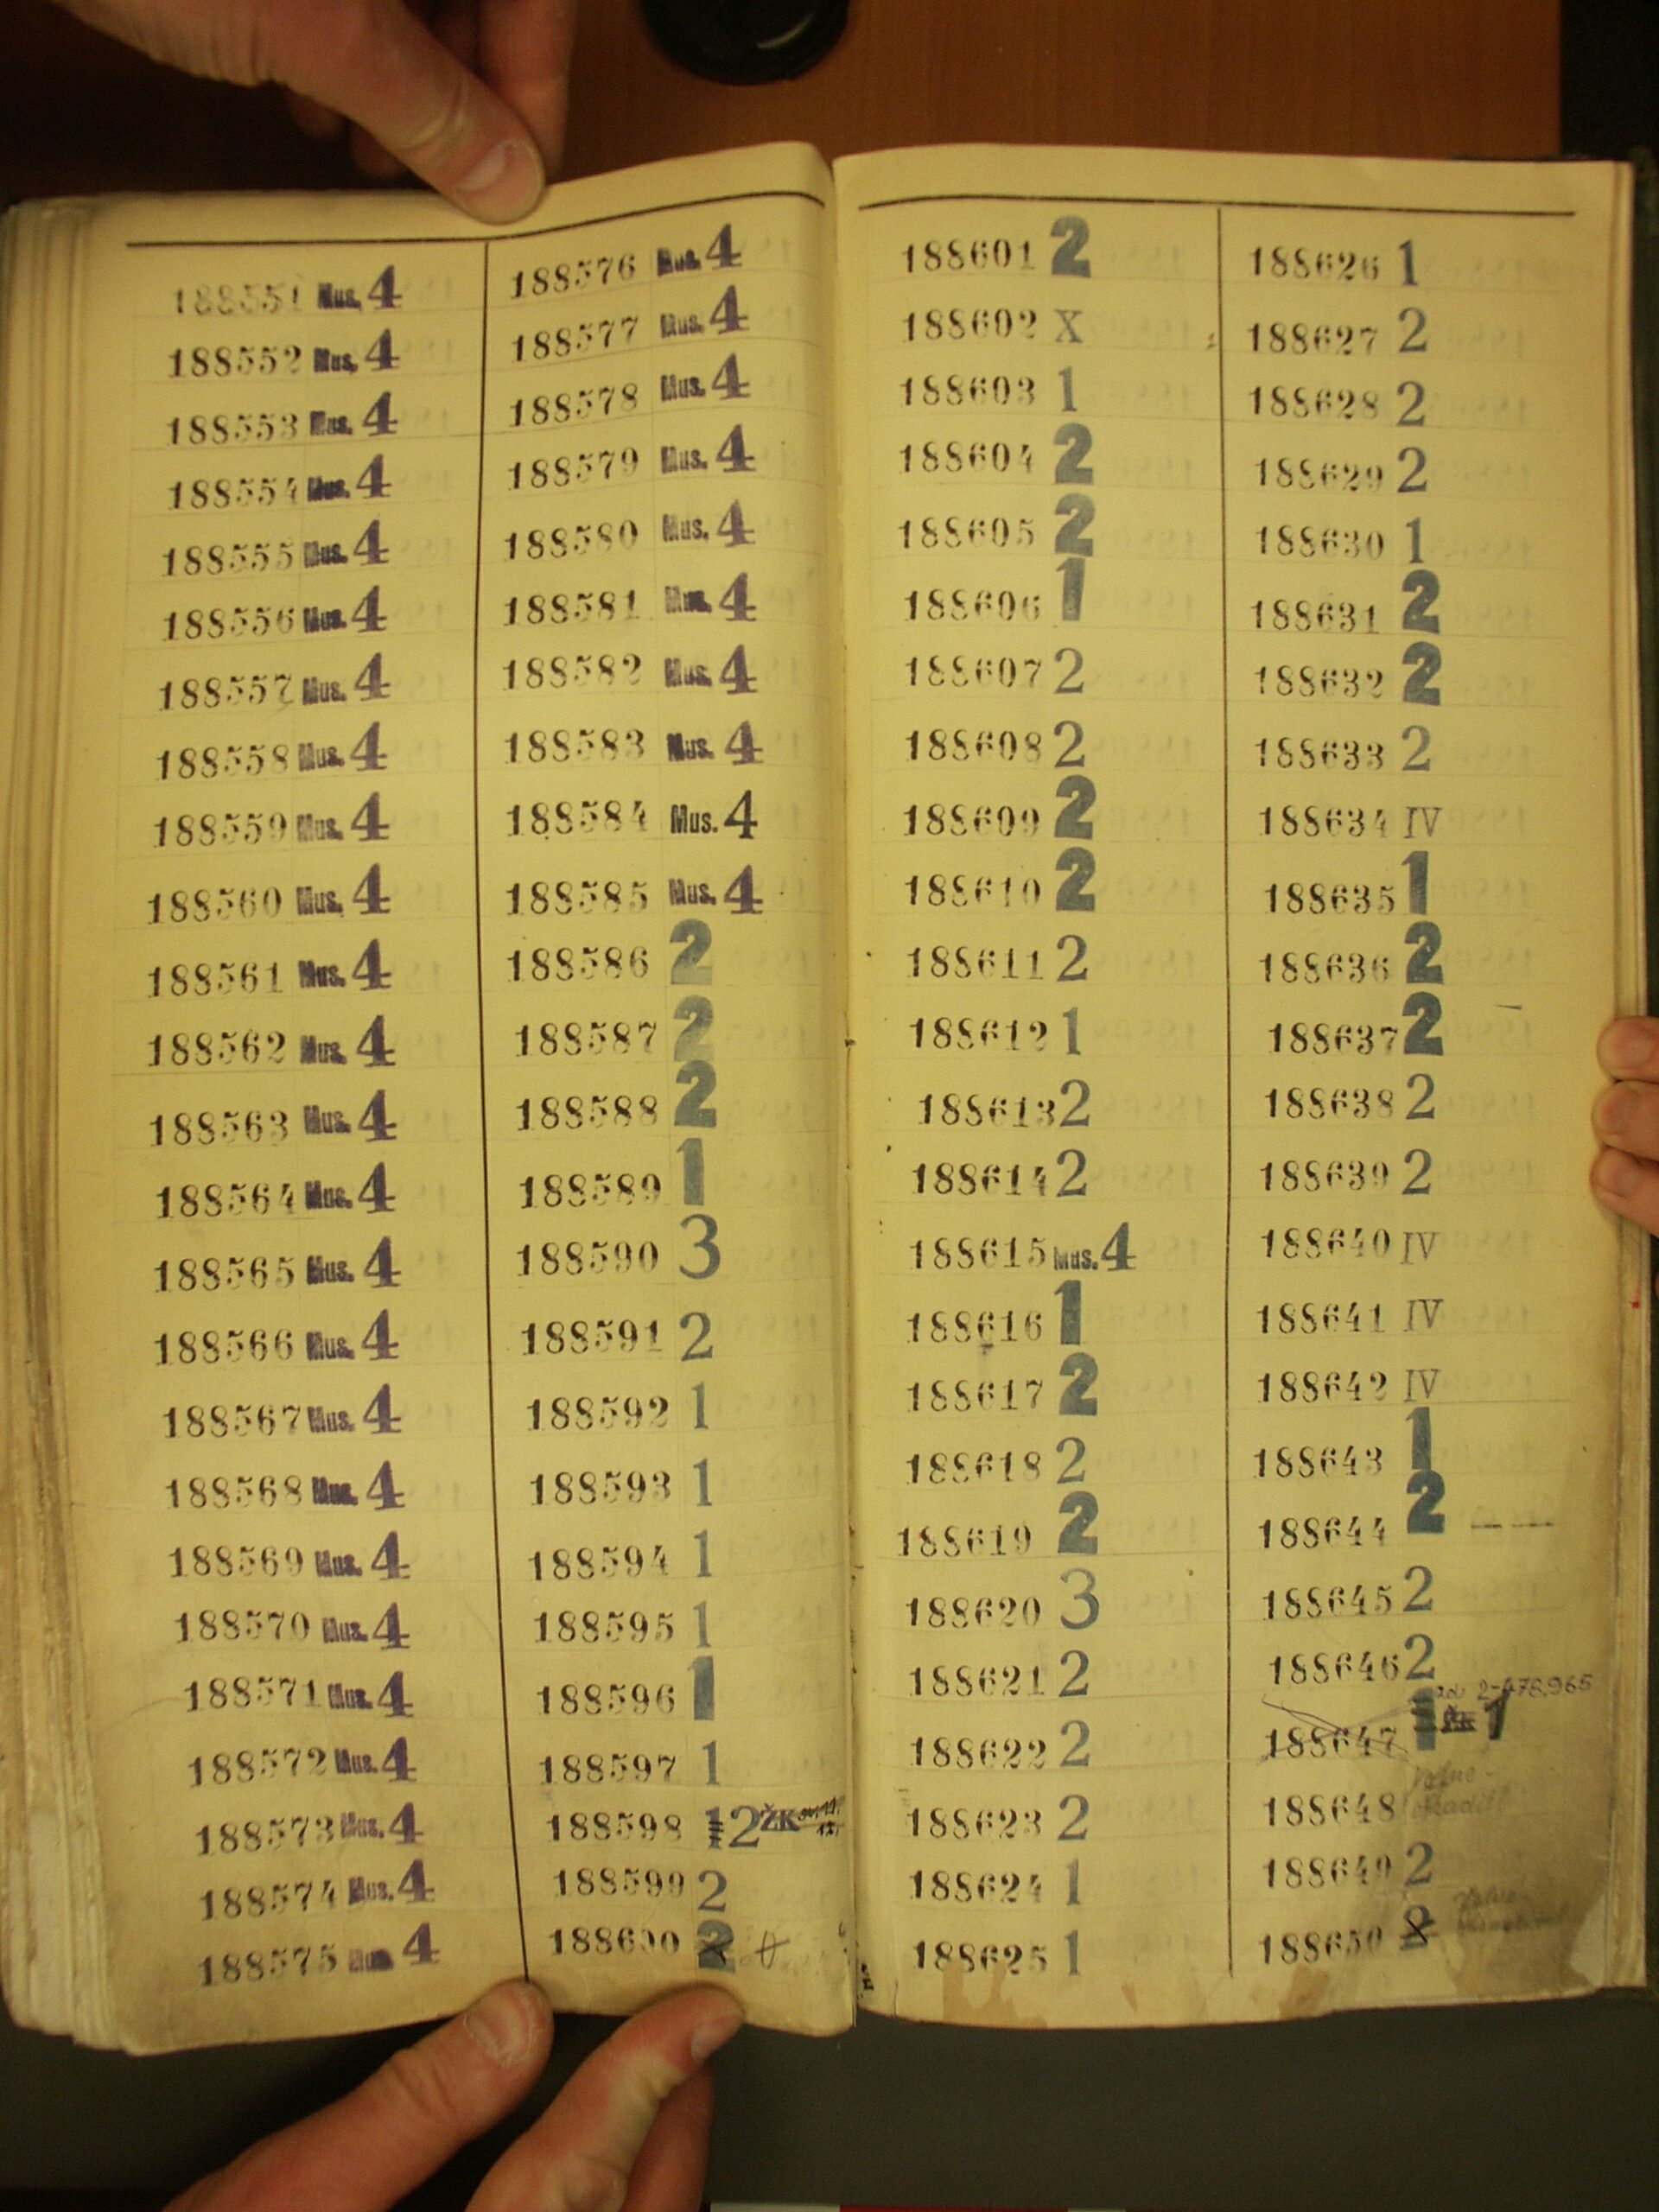 188551 Mus. 4
188552 Mus. 4
188553 Mus. 4
188554 Mus. 4
188555 Mus. 4
188556 Mus. 4
188557 Mus. 4
188558 Mus. 4
188559 Mus. 4
188560 Mus. 4
188561 Mus. 4
188562 Mus. 4
188563 Mus. 4
188564 Mus. 4
188565 Mus. 4
188566 Mus. 4
188567 Mus. 4
188568 Mus. 4
188569 Mus. 4
188570 Mus. 4
188571 Mus. 4
188572 Mus. 4
188573 Mus. 4
188574 Mus. 4
188575 Mus. 4
188576 Mus. 4
188577 Mus. 4
188578 Mus. 4
188579 Mus. 4
188580 Mus. 4
188581 Mus. 4
188582 Mus. 4
188583 Mus. 4
188584 Mus. 4
188585 Mus. 4
188586 2
188587 2
188588 2
188589 1
188590 3
188591 2
188592 1
188593 1
188594 1
188595 1
188596 1
188597 1
188598 1 2 ŽK
188599 2
188600 2
188601 2
188602 X
188603 1
188604 2
188605 2
188606 1
188607 2
188608 2
188609 2
188610 2
188611 2
188612 1
188613 2
188614 2
188615 Mus. 4
188616 1
188617 2
188618 2
188619 2
188620 3
188621 2
188622 2
188623 2
188624 1
188625 1
188626 1
188627 2
188628 2
188629 2
188630 1
188631 2
188632 2
188633 2
188634 IV
188635 1
188636 2
188637 2
188638 2
188639 2
188640 IV
188641 IV
188642 IV
188643 1
188644 2
188645 2
188646 2
188647 1 1
188648
188649 2
188650 2